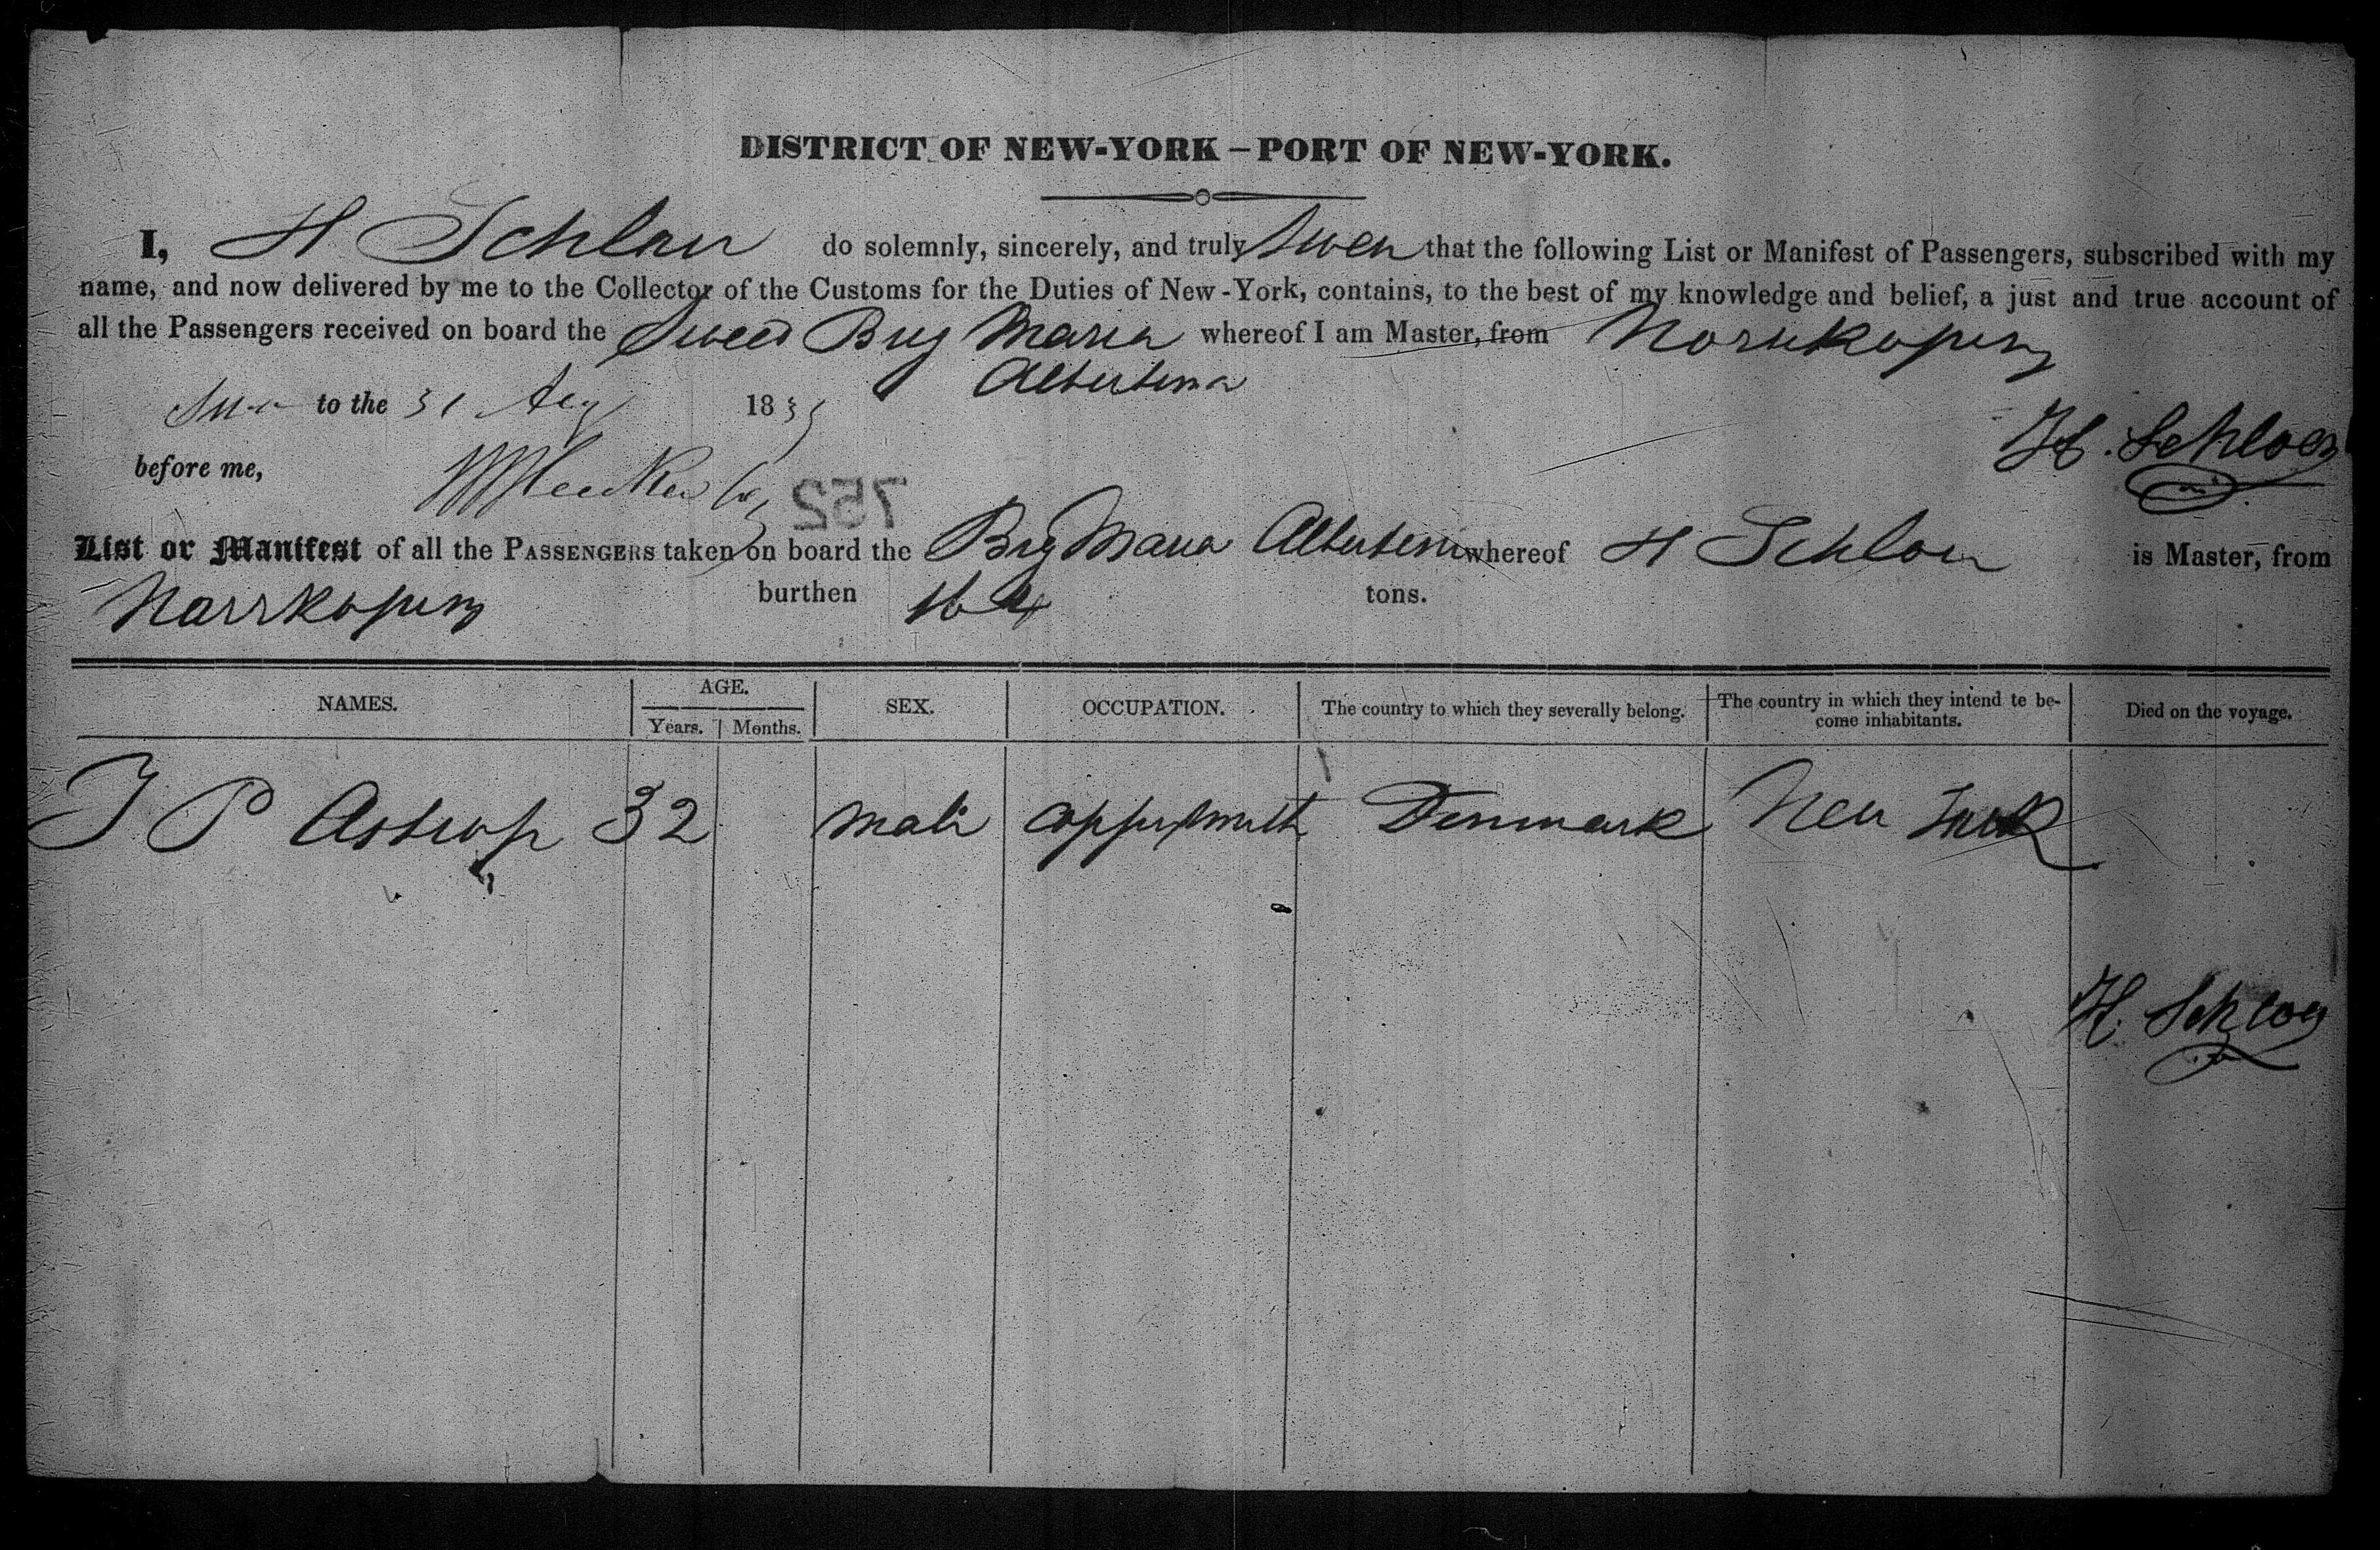 DISTRICT OF NEW-YORK – PORT OF NEW-YORK.
I, H Schlau do solemnly, sincerely, and truly swea that the following List or Manifest of Passengers, subscribed with my
name, and now delivered by me to the Collector of the Customs for the Duties of New-York, contains, to the best of my knowledge and belief, a just and true account of
all the Passengers received on board the Sweed Brig Maria whereof I am Master, from Norrkoping
Albertina
to the 31 Aug 1835
H. Schloen
before me,
752
List or Manifest of all the PASSENGERS taken on board the Brig Maria Albertina whereof H Schlou is Master, from
Norrkoping burthen 164 tons.
NAMES. AGE. SEX. OCCUPATION. The country to which they severally belong. The country in which they intend te be-come inhabitants. Died on the voyage.
Years. Months.
J P Astrop 32 male coppersmith Denmark New York
H. Schloen